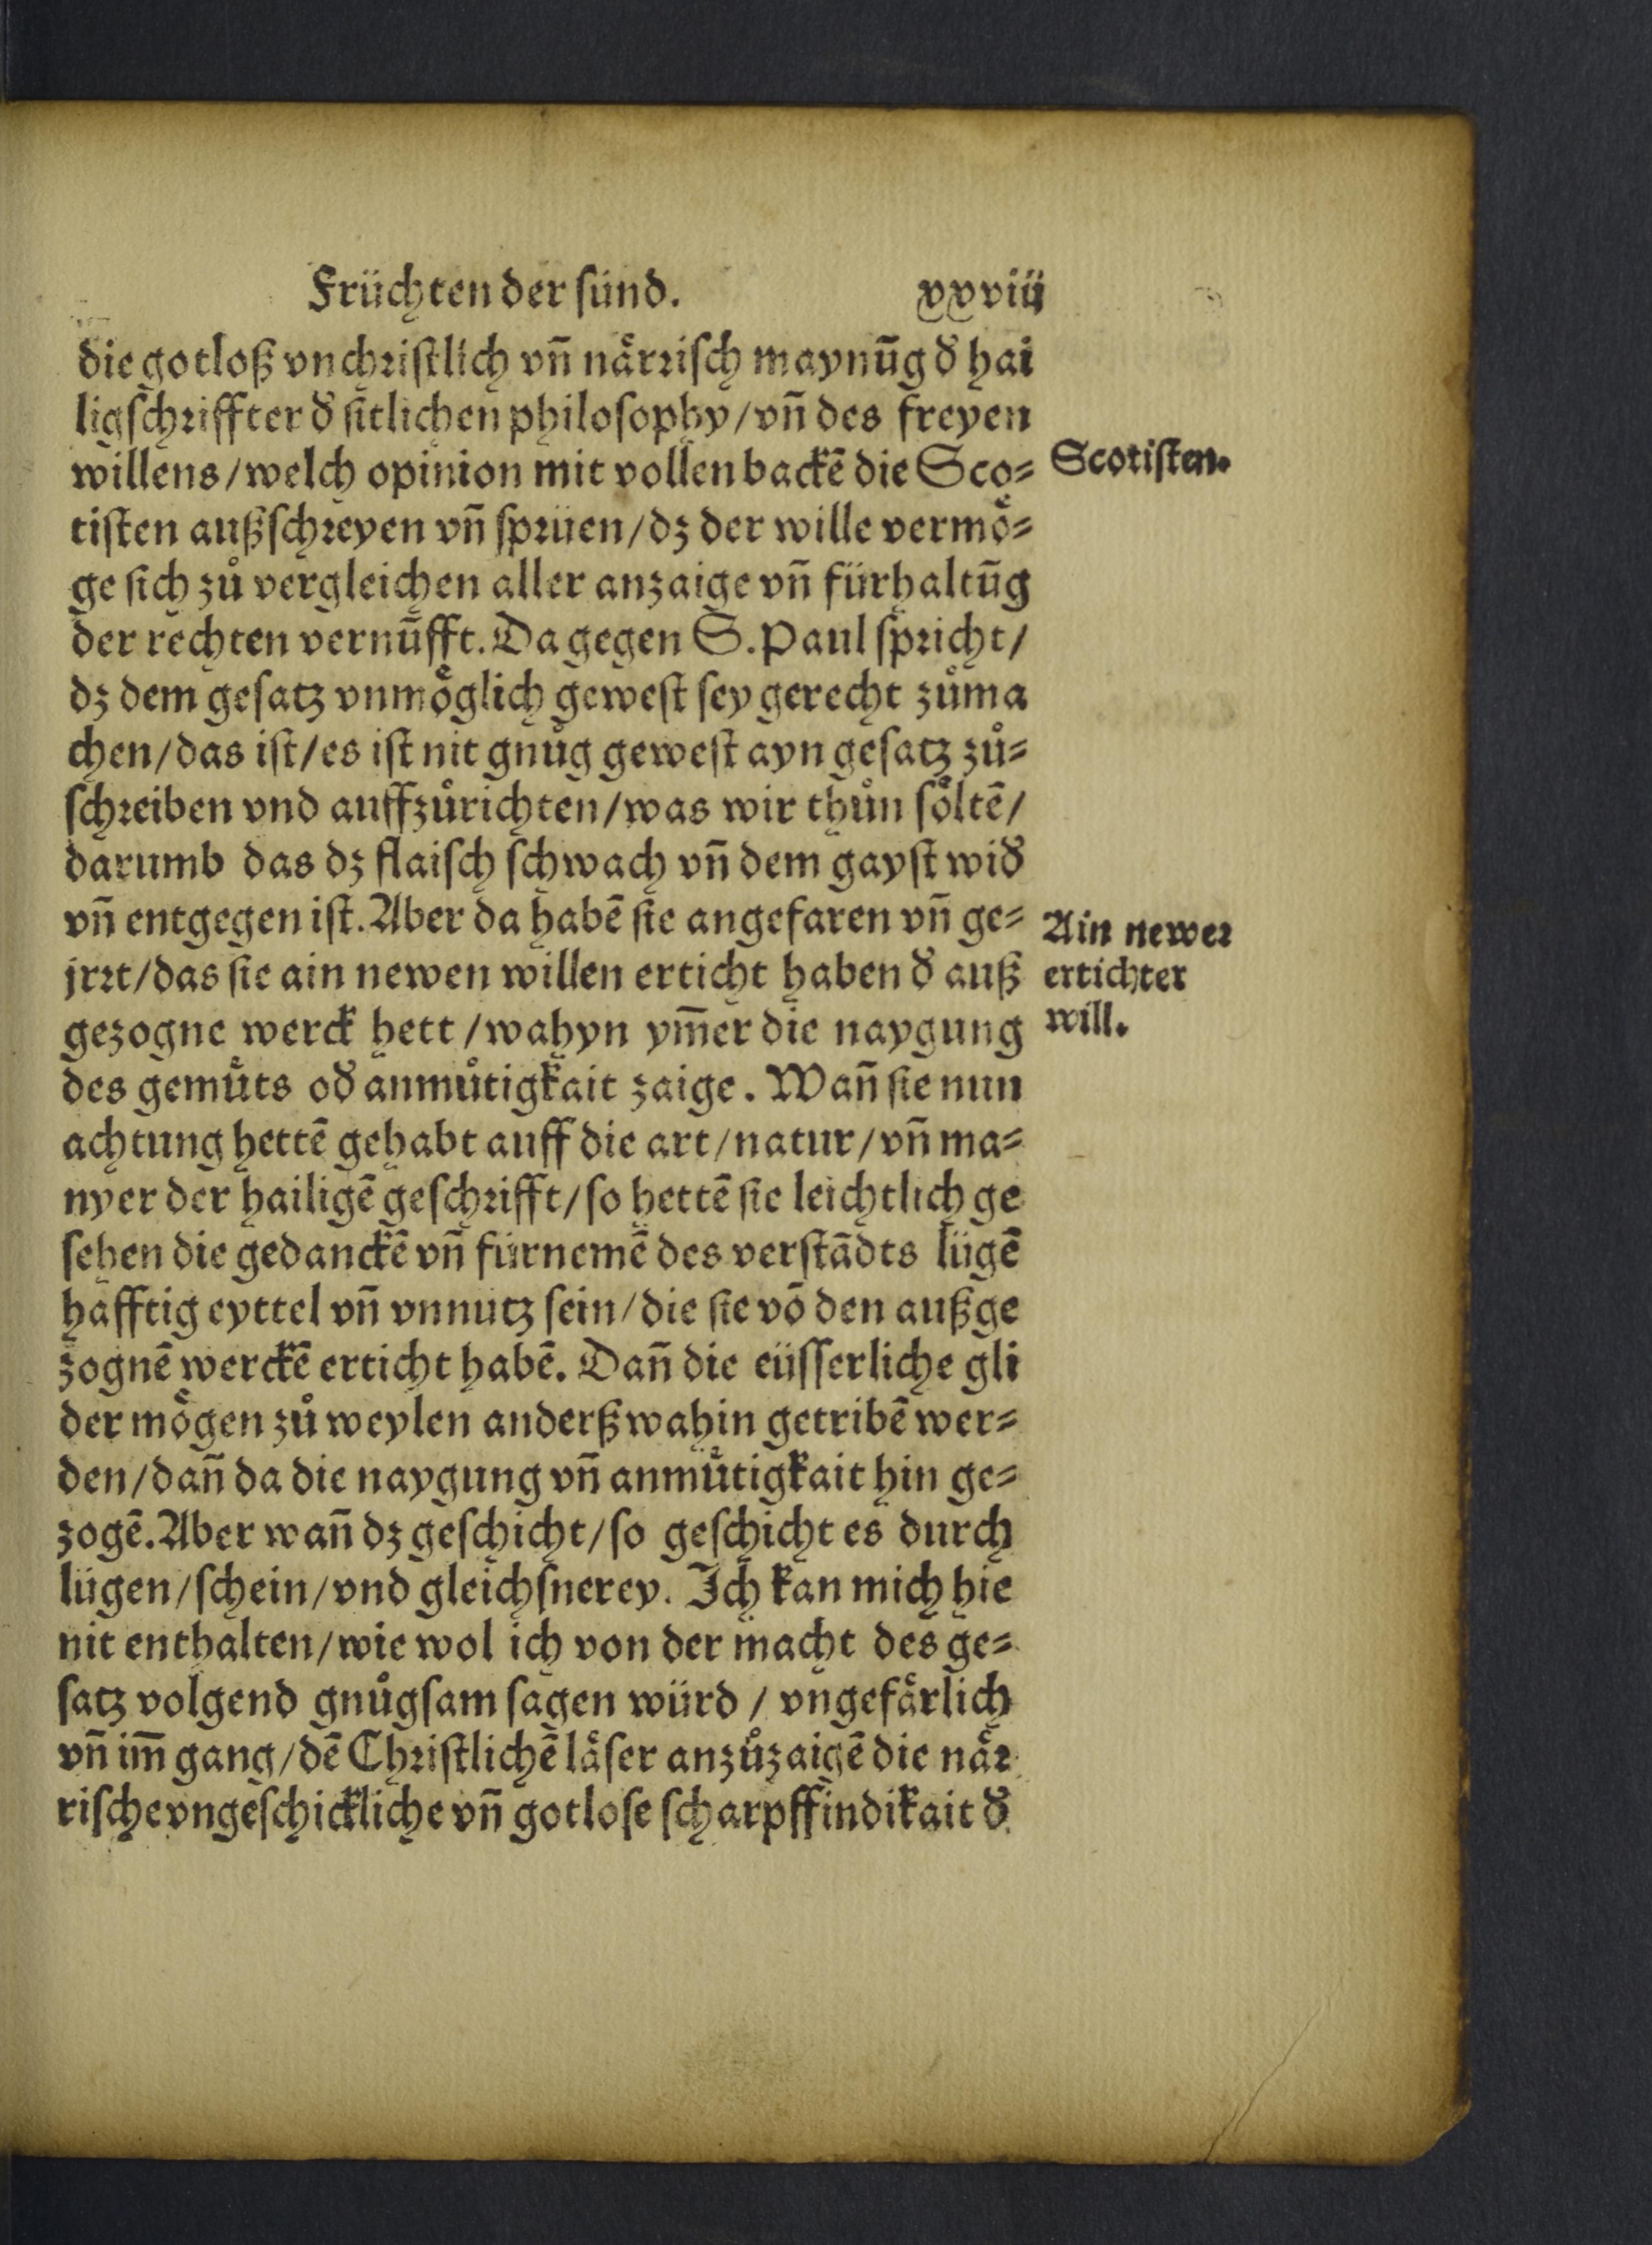 Früchten der sünd. xxviij
die gotloß vnchristlich vn̄ nåꝛꝛisch maynūg ð hai
ligschriffter ð sitlichen philosophy/vn̄ des freyen
willens/welch opinion mit vollen backē die Sco⸗
Scotisten.
tisten außschreyen vn̄ sprüen/dz der wille vermoͤ⸗
ge sich zů vergleichen aller anzaige vn̄ fürhaltūg
der rechten vernūfft. Da gegen S. Paul spricht/
dz dem gesatz vnmoͤglich gewest sey gerecht zůma
chen/das ist/es ist nit gnůg gewest ayn gesatz zů⸗
schreiben vnd auffzůrichten/was wir thůn soͤltē/
darumb das dz flaisch schwach vn̄ dem gayst wið
vn̄ entgegen ist. Aber da habē sie angefaren vn̄ ge⸗
Ain newer
jrrt/das sie ain newen willen erticht haben ð auß
ertichter
gezogne werck hett/wahyn ym̄er die naygung
will.
des gemuͤts oð anmuͤtigkait zaige. Wan̄ sie nun
achtung hettē gehabt auff die art/natur/vn̄ ma⸗
nyer der hailigē geschrifft/so hettē sie leichtlich ge
sehen die gedanckē vn̄ fürnemē des verstādts lügē
hafftig eyttel vn̄ vnnutz sein/die sie vō den außge
zognē werckē erticht habē. Dan̄ die eüsserliche gli
der moͤgen zů weylen anderßwahin getribē wer⸗
den/dan̄ da die naygung vn̄ anmuͤtigkait hin ge⸗
zogē. Aber wan̄ dz geschicht/so geschicht es durch
lügen/schein/vnd gleichsnerey. Ich kan mich hie
nit enthalten/wie wol ich von der macht des ge⸗
satz volgend gnůgsam sagen würd / vngefaͤrlich
vn̄ im̄ gang/dē Christlichē laͤser anzůzaigē die naͤr
rische vngeschickliche vn̄ gotlose scharpffindikait ð